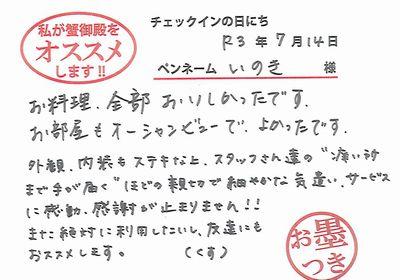 私が蟹御殿を
オススメ
します!!
チェックインの日にち
R3年7月14日
ペンネーム いのき 様
お料理、全部おいしかったです。
お部屋もオーシャンビューで、よかったです。
外観、内装もステキな上、スタッフさん達の"痒い所
まで手が届く"ほどの親切で細やかな気遣い、サービス
に感動、感謝が止まりません!!
また絶対に利用したいし、友達にも
おススメします。 (くす)
お墨
つき